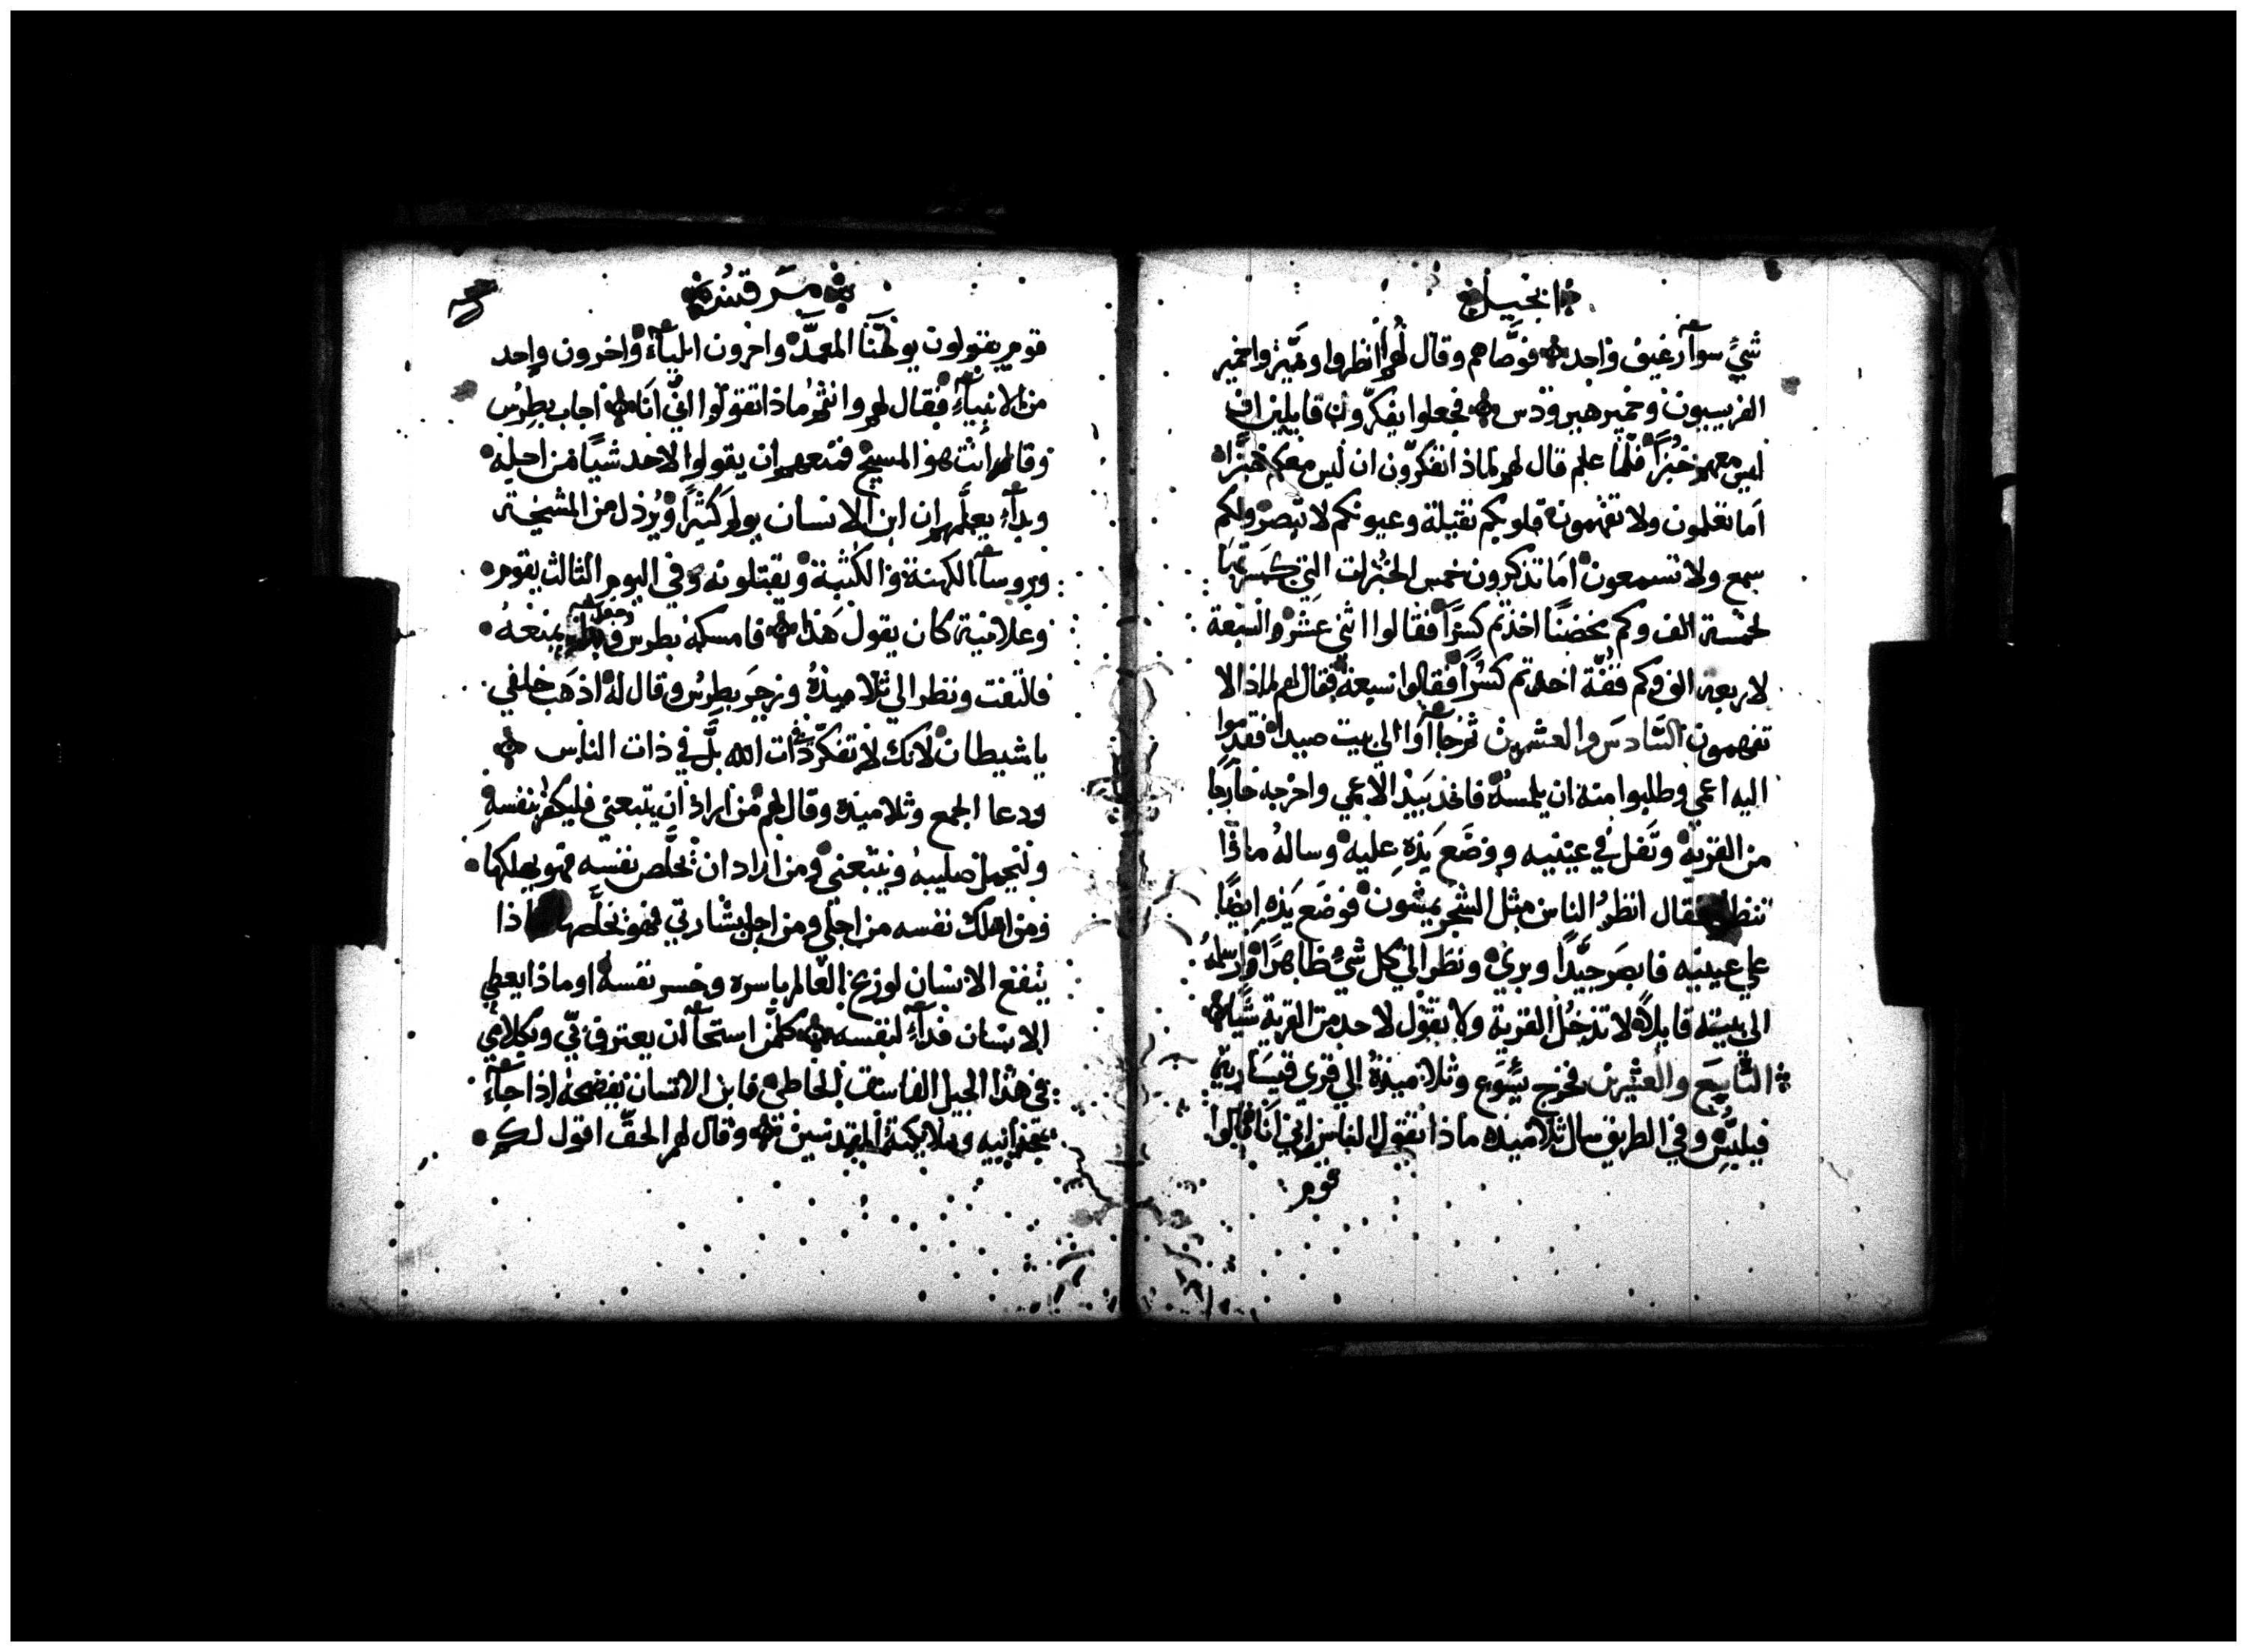 انجيل
شيً سوآ رغيف واحد فوصّاهم وقال لهم انظروا وميّزوا خمير
الفريسيون وخمير هيرودس فجعلوا يفكرّون قايلين ان
ليس معهم خبزاً فلما علم قال لهم لماذا تفكرّون ان ليس معكم خبزًا
اما تعلمون ولا تفهمون قلوبكم ثقيلة وعيونكم لا تبصر ولكم
سمع ولا تسمعون اما تذكرون خمس الخبزات التي كسرتها
لخمسة الف وكم حضنًا اخذتم كسرًا فقالوا اثني عشر والسبعة
لاربعة الف وكم قفّة اخذتم كسرًا فقالوا سبعة فقال لهم لماذا لا
تفهمون السّادس والعشرين ثم جآاوا الي بيت صيدا فقدموا
اليه اعمي وطلبوا منه ان يلمسه فاخذ بيد الاعمي واخرجه خارجًا
من القرية وتفل في عينيه ووضع يده عليه وساله ماذا
تنظر فقال انظر الناس مثل الشجر يمشون فوضع يده ايضًا
علي عينيه فابصر جيّدًا وبري ونظر الي كل شيً ظاهرًا وارسله
الي بيته قايلاً لا تدخل القرية ولا تقول لاحد من القرية شيًا
السّابع والعشرين فخرج يسوع وتلاميذه الي قري قيسارية
فيلبّس وفي الطريق سال تلاميذه ماذا تقول الناس اني انا فقالوا
قوم
مرقس
قوم يقولون يوحنّا المعمدّ واخرون ايليآء واخرون واحد
من الانبيآء فقال لهم وانتم ماذا تقولوا انّي انا اجاب بطرس
وقال انت هو المسيح فمنعهم ان يقولوا لاحد شيًا من اجله
وبدآء يعلّمهم ان ابن الانسان يولم كثيرًا ويُرذل من المشيخة
وروسآ الكهنة والكتبة ويقتلونه وفي اليوم الثالث يقوم
وعلانية كان يقول هذا فامسكه بطرس وجعل يمنعه
فالتفت ونظر الي تلاميذه وزجر بطرس وقال له اذهب خلفي
يا شيطان لانك لا تفكرّ في ذات الله بل في ذات الناس
ودعا الجمع وتلاميذه وقال لهم من اراد ان يتبعني فليكفر بنفسه
وليحمل صليبه ويتبعني ومن اراد ان يخلّص نفسه فهو يهلكها
ومن اهلك نفسه من اجلي ومن اجل بشارتي فهو يخلّصها ماذا
ينفع الانسان لو ربح العالم باسره وخسر نفسه او ماذا يعطي
الانسان فدآء لنفسه كلمن استحا ان يعترف بي وبكلامي
في هذا الجيل الفاسق الخاطي فابن الانسان يفضحه اذا جآء
بمجد ابيه وملايكته المقدسين وقال لهم الحقّ اقول لكم